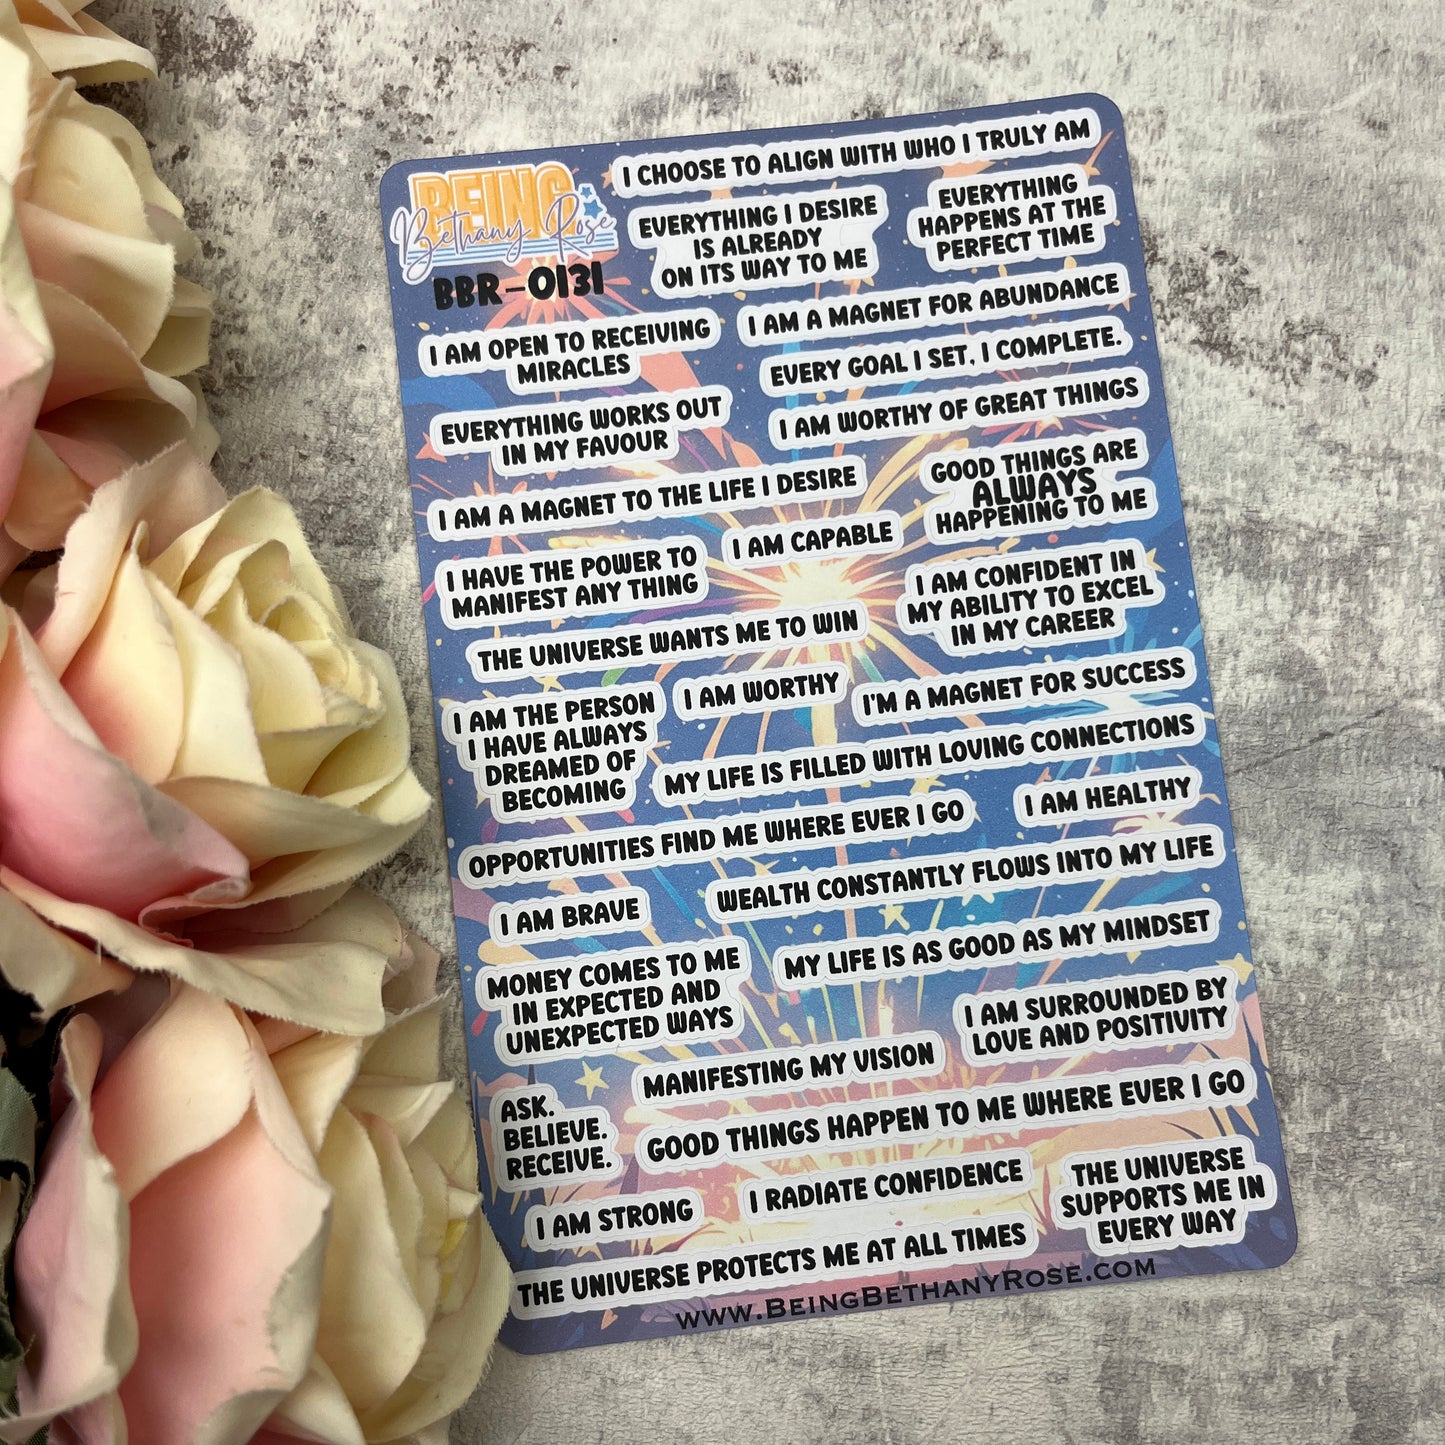 BEING
Bethany Rose
BBR-0131
I CHOOSE TO ALIGN WITH WHO I TRULY AM
EVERYTHING I DESIRE
IS ALREADY
ON ITS WAY TO ME
EVERYTHING
HAPPENS AT THE
PERFECT TIME
I AM OPEN TO RECEIVING
MIRACLES
I AM A MAGNET FOR ABUNDANCE
EVERY GOAL I SET, I COMPLETE.
EVERYTHING WORKS OUT
IN MY FAVOUR
I AM WORTHY OF GREAT THINGS
I AM A MAGNET TO THE LIFE I DESIRE
GOOD THINGS ARE
ALWAYS
HAPPENING TO ME
I HAVE THE POWER TO
MANIFEST ANY THING
I AM CAPABLE
I AM CONFIDENT IN
MY ABILITY TO EXCEL
IN MY CAREER
THE UNIVERSE WANTS ME TO WIN
I AM THE PERSON
I HAVE ALWAYS
DREAMED OF
BECOMING
I AM WORTHY
I'M A MAGNET FOR SUCCESS
MY LIFE IS FILLED WITH LOVING CONNECTIONS
OPPORTUNITIES FIND ME WHERE EVER I GO
I AM HEALTHY
I AM BRAVE
WEALTH CONSTANTLY FLOWS INTO MY LIFE
MONEY COMES TO ME
IN EXPECTED AND
UNEXPECTED WAYS
MY LIFE IS AS GOOD AS MY MINDSET
I AM SURROUNDED BY
LOVE AND POSITIVITY
MANIFESTING MY VISION
ASK.
BELIEVE.
RECEIVE.
GOOD THINGS HAPPEN TO ME WHERE EVER I GO
I AM STRONG
I RADIATE CONFIDENCE
THE UNIVERSE
SUPPORTS ME IN
EVERY WAY
THE UNIVERSE PROTECTS ME AT ALL TIMES
WWW.BEINGBETHANYROSE.COM